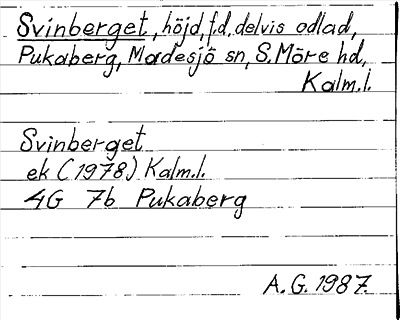 Svinberget, höjd, f.d. delvis odlad,
Pukaberg, Madesjö sn, S. Möre hd,
Kalm.l.
Svinberget
ek (1978) Kalm.l.
4G 7b Pukaberg
A.G. 1987.